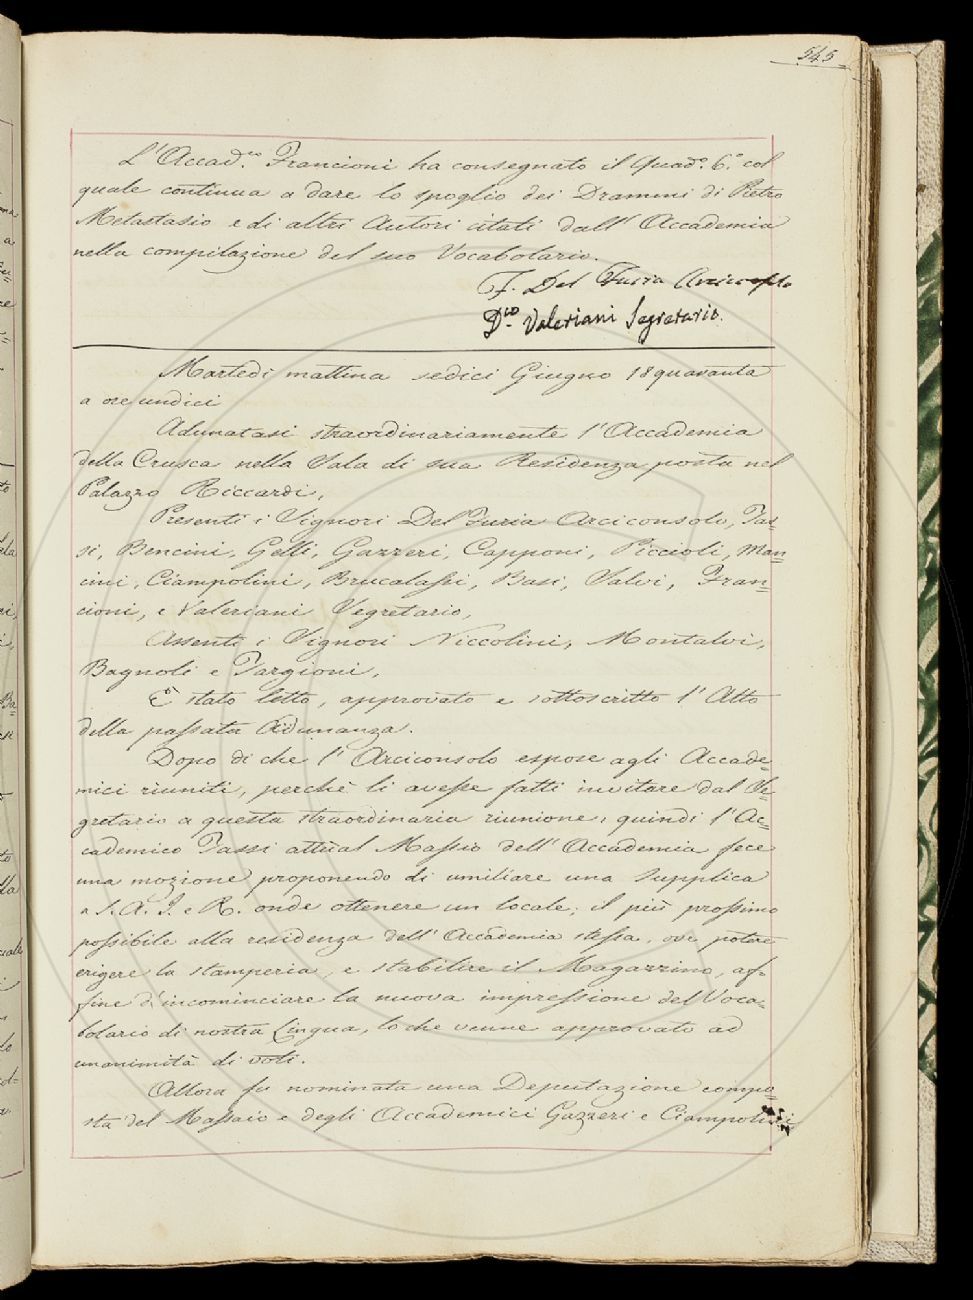 545
L'Accad.co Francioni ha consegnato il Quad.o 6.o col
quale continua a dare lo spoglio dei Drammi di Pietro
Metastasio e di altri Autori citati dall'Accademia
nella compilazione del suo Vocabolario.
F. Del Furia Arciconsolo
D.co Valeriani Segretario.
Martedì mattina sedici Giugno 18quaranta
a ore undici
Adunatasi straordinariamente l'Accademia
della Crusca nella Sala di sua Residenza posta nel
Palazzo Riccardi,
Presenti i Signori Del Furia Arciconsolo, Tas=
si, Bencini, Gelli, Gazzeri, Capponi, Piccioli, Man=
cini, Ciampolini, Brucalassi, Basi, Salvi, Fran=
cioni, e Valeriani Segretario,
Assenti i Signori Niccolini, Montalvi,
Bagnoli e Targioni,
È stato letto, approvato e sottoscritto l'Atto
della passata Adunanza.
Dopo di che l'Arciconsolo espose agli Accade=
mici riuniti, perchè li avesse fatti invitare dal Se=
gretario a questa straordinaria riunione; quindi l'Ac=
cademico Tassi attual Massaio dell'Accademia fece
una mozione proponendo di umiliare una Supplica
a S. A. I. e R. onde ottenere un locale, il più prossimo
possibile alla residenza dell'Accademia stessa, ove potere
erigere la stamperia, e stabilire il Magazzino, af=
fine d'incominciare la nuova impressione del Voca=
bolario di nostra Lingua, lo che venne approvato ad
unanimità di voti.
Allora fu nominata una Deputazione compo=
sta del Massaio e degli Accademici Gazzeri e Ciampolini